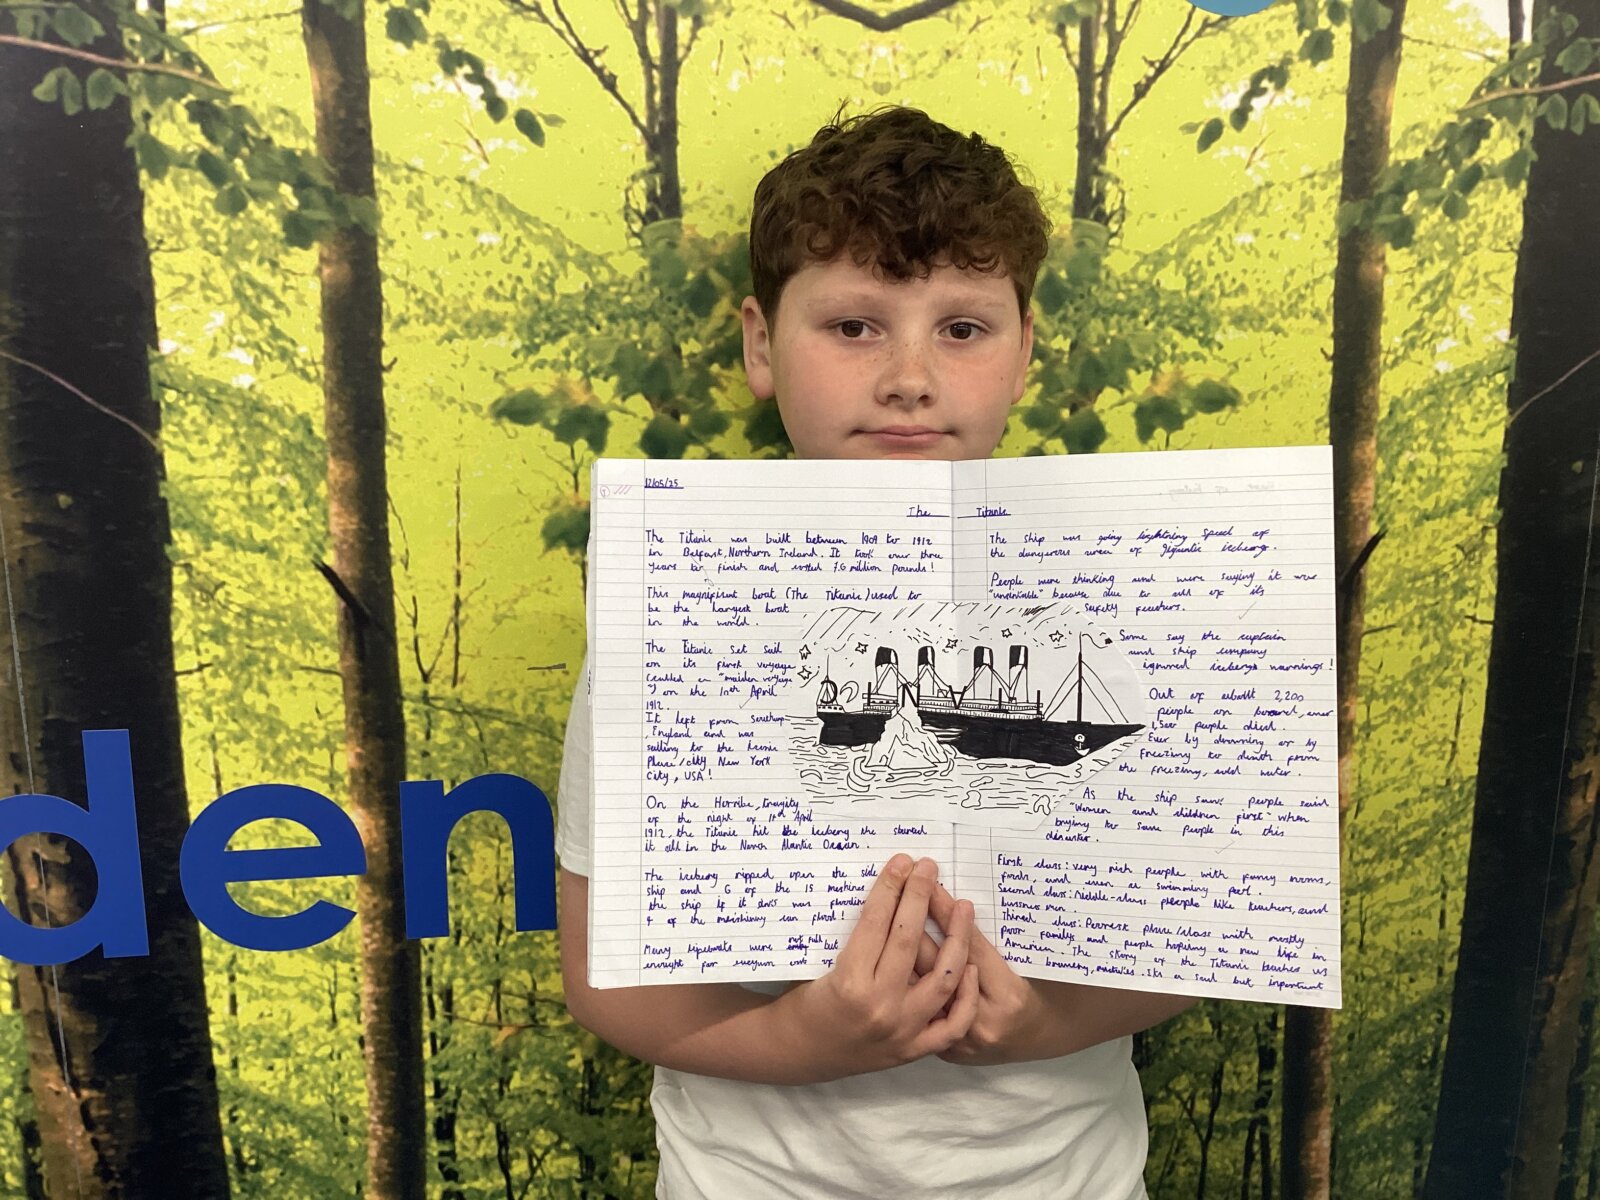 den
12/05/25
The Titanic
The Titanic was built between 1909 to 1912
in Belfast, Northern Ireland. It took over three
years to finish and costed 7.6 million pounds!
This magnificent boat (The Titanic) used to
be the largest boat
in the world.
The Titanic set sail
on its first voyage
(called a "maiden voyage
") on the 10th April
1912.
It left from
, England and was
sailing to the
Place/city New York
City, USA!
On the Horribe,
of the night of 14th April
1912, the Titanic hit the iceberg the started
it all in the North Atlantic Ocean.
The iceberg ripped open the side
ship and 6 of the 15
the ship if it was flooding
4 of the can flood!
Many lifeboats were not full but
for out of
The ship was going lightning speed of
the dangerous area of gigantic icebergs.
People were thinking and were saying it was
"unsinkable" because due to all of its
safety features.
Some say the captain
and ship company
ignored iceberg warnings!
Out of about 2,200
people on board, over
1,500 people died.
Ever by drowning or by
freezing to death from
the freezing, cold water.
As the ship sank people said
"Women and children first" when
trying to save people in this
disaster.
First class: very rich people with fancy rooms,
foods, and even a swimming pool.
Second class: Middle-class people like teachers, and
Third class: Poorest place/class with mostly
poor familys and people hoping a new life in
America. The story of the Titanic teaches us
about bravery, mistakes. Its a sad but important